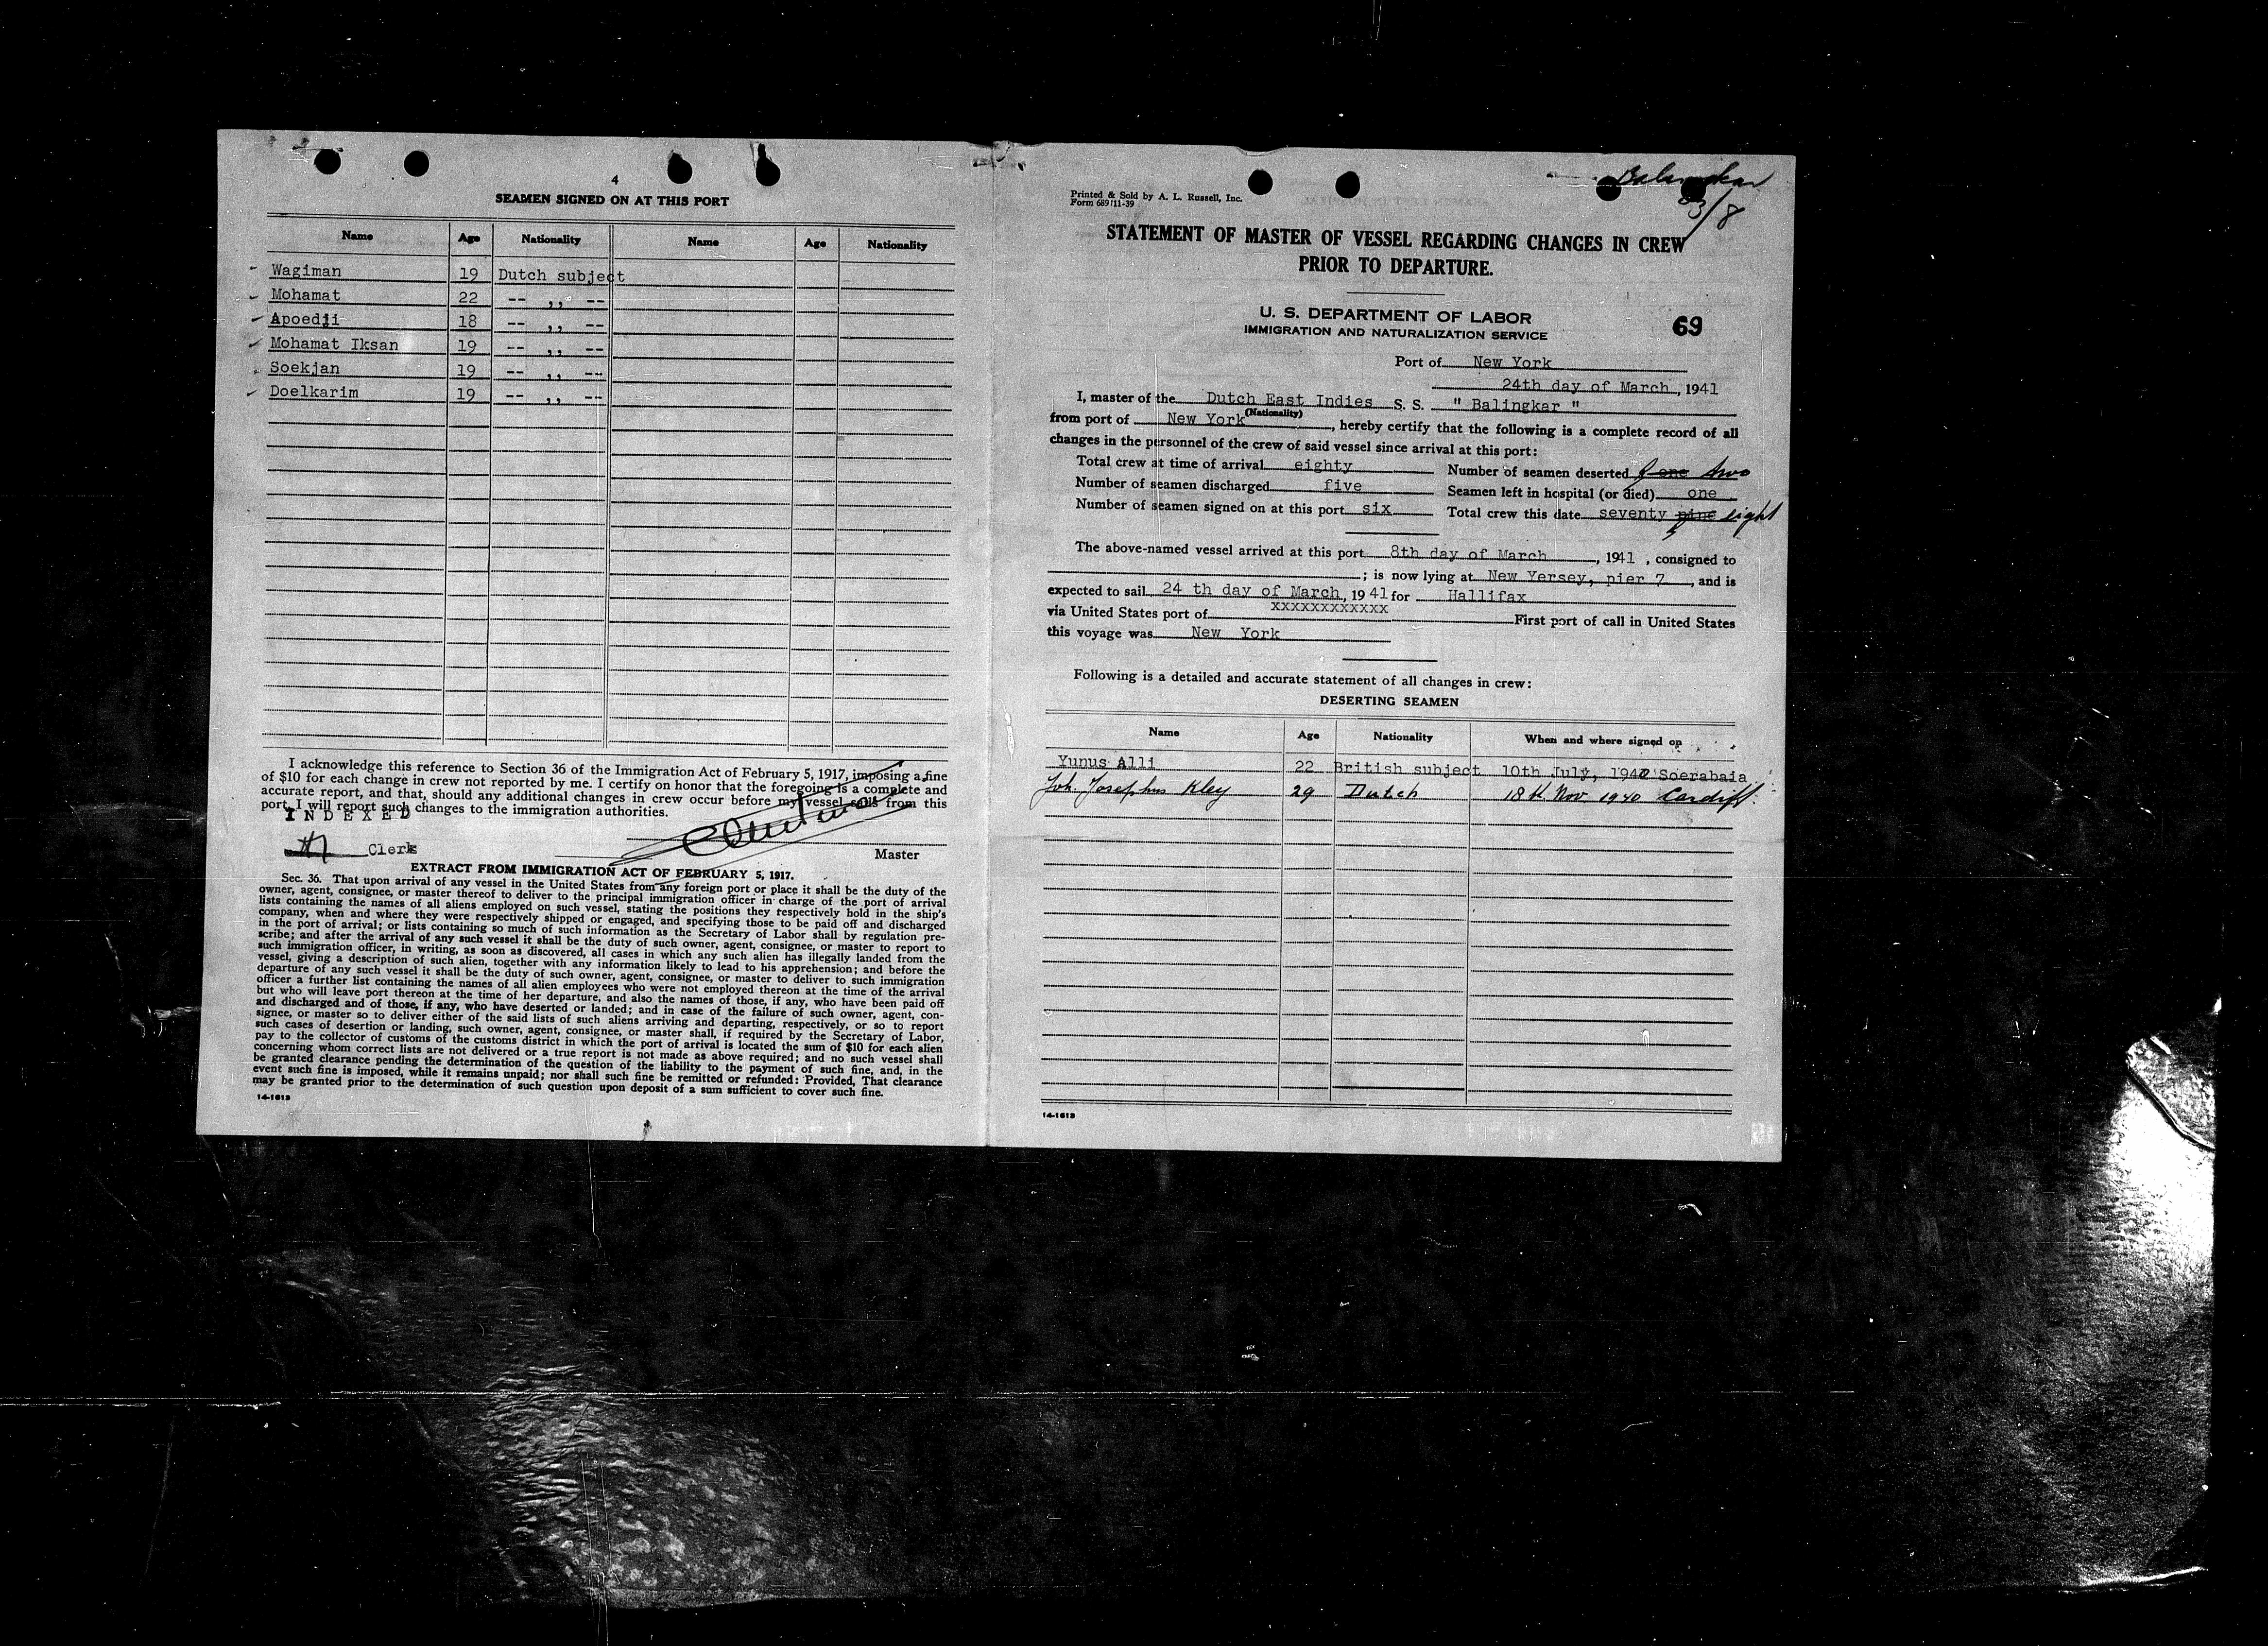 4
SEAMEN SIGNED ON AT THIS PORT
Name Age Nationality Name Age Nationality
Wagiman 19 Dutch subject
Mohamat 22 -- ,, --
Apoedji 18 -- ,, --
Mohamat Iksan 19 -- ,, --
Soekjan 19 -- ,, --
Doelkarim 19 -- ,, --
I acknowledge this reference to Section 36 of the Immigration Act of February 5, 1917, imposing a fine
of $10 for each change in crew not reported by me. I certify on honor that the foregoing is a complete and
accurate report, and that, should any additional changes in crew occur before my vessel sails from this
port, I will report such changes to the immigration authorities.
INDEXED
Clerk
Master
EXTRACT FROM IMMIGRATION ACT OF FEBRUARY 5, 1917.
Sec. 36. That upon arrival of any vessel in the United States from any foreign port or place it shall be the duty of the
owner, agent, consignee, or master thereof to deliver to the principal immigration officer in charge of the port of arrival
lists containing the names of all aliens employed on such vessel, stating the positions they respectively hold in the ship's
company, when and where they were respectively shipped or engaged, and specifying those to be paid off and discharged
in the port of arrival; or lists containing so much of such information as the Secretary of Labor shall by regulation pre-
scribe; and after the arrival of any such vessel it shall be the duty of such owner, agent, consignee, or master to report to
such immigration officer, in writing, as soon as discovered, all cases in which any such alien has illegally landed from the
vessel, giving a description of such alien, together with any information likely to lead to his apprehension; and before the
departure of any such vessel it shall be the duty of such owner, agent, consignee, or master to deliver to such immigration
officer a further list containing the names of all alien employees who were not employed thereon at the time of the arrival
but who will leave port thereon at the time of her departure, and also the names of those, if any, who have been paid off
and discharged and of those, if any, who have deserted or landed; and in case of the failure of such owner, agent, con-
signee, or master so to deliver either of the said lists of such aliens arriving and departing, respectively, or so to report
such cases of desertion or landing, such owner, agent, consignee, or master shall, if required by the Secretary of Labor,
pay to the collector of customs of the customs district in which the port of arrival is located the sum of $10 for each alien
concerning whom correct lists are not delivered or a true report is not made as above required; and no such vessel shall
be granted clearance pending the determination of the question of the liability to the payment of such fine, and, in the
event such fine is imposed, while it remains unpaid; nor shall such fine be remitted or refunded: Provided, That clearance
may be granted prior to the determination of such question upon deposit of a sum sufficient to cover such fine.
14-1613
Balingkar
3/8
Printed & Sold by A. L. Russell, Inc.
Form 689/11-39
STATEMENT OF MASTER OF VESSEL REGARDING CHANGES IN CREW
PRIOR TO DEPARTURE.
U. S. DEPARTMENT OF LABOR
IMMIGRATION AND NATURALIZATION SERVICE
69
Port of New York
24th day of March, 1941
I, master of the Dutch East Indies S. S. " Balingkar "
(Nationality)
from port of New York, hereby certify that the following is a complete record of all
changes in the personnel of the crew of said vessel since arrival at this port:
Total crew at time of arrival eighty Number of seamen deserted one two
Number of seamen discharged five Seamen left in hospital (or died) one
Number of seamen signed on at this port six Total crew this date seventy nine eight
The above-named vessel arrived at this port 8th day of March, 1941, consigned to
; is now lying at New Yersey, pier 7, and is
expected to sail 24 th day of March, 1941 for Hallifax
via United States port of xxxxxxxxxxxx First port of call in United States
this voyage was New York
Following is a detailed and accurate statement of all changes in crew:
DESERTING SEAMEN
Name Age Nationality When and where signed on
Yunus Alli 22 British subject 10th July, 1940 Soerabaia
Joh. Josephus Kley 29 Dutch 18th Nov 1940 Cardiff.
14-1613